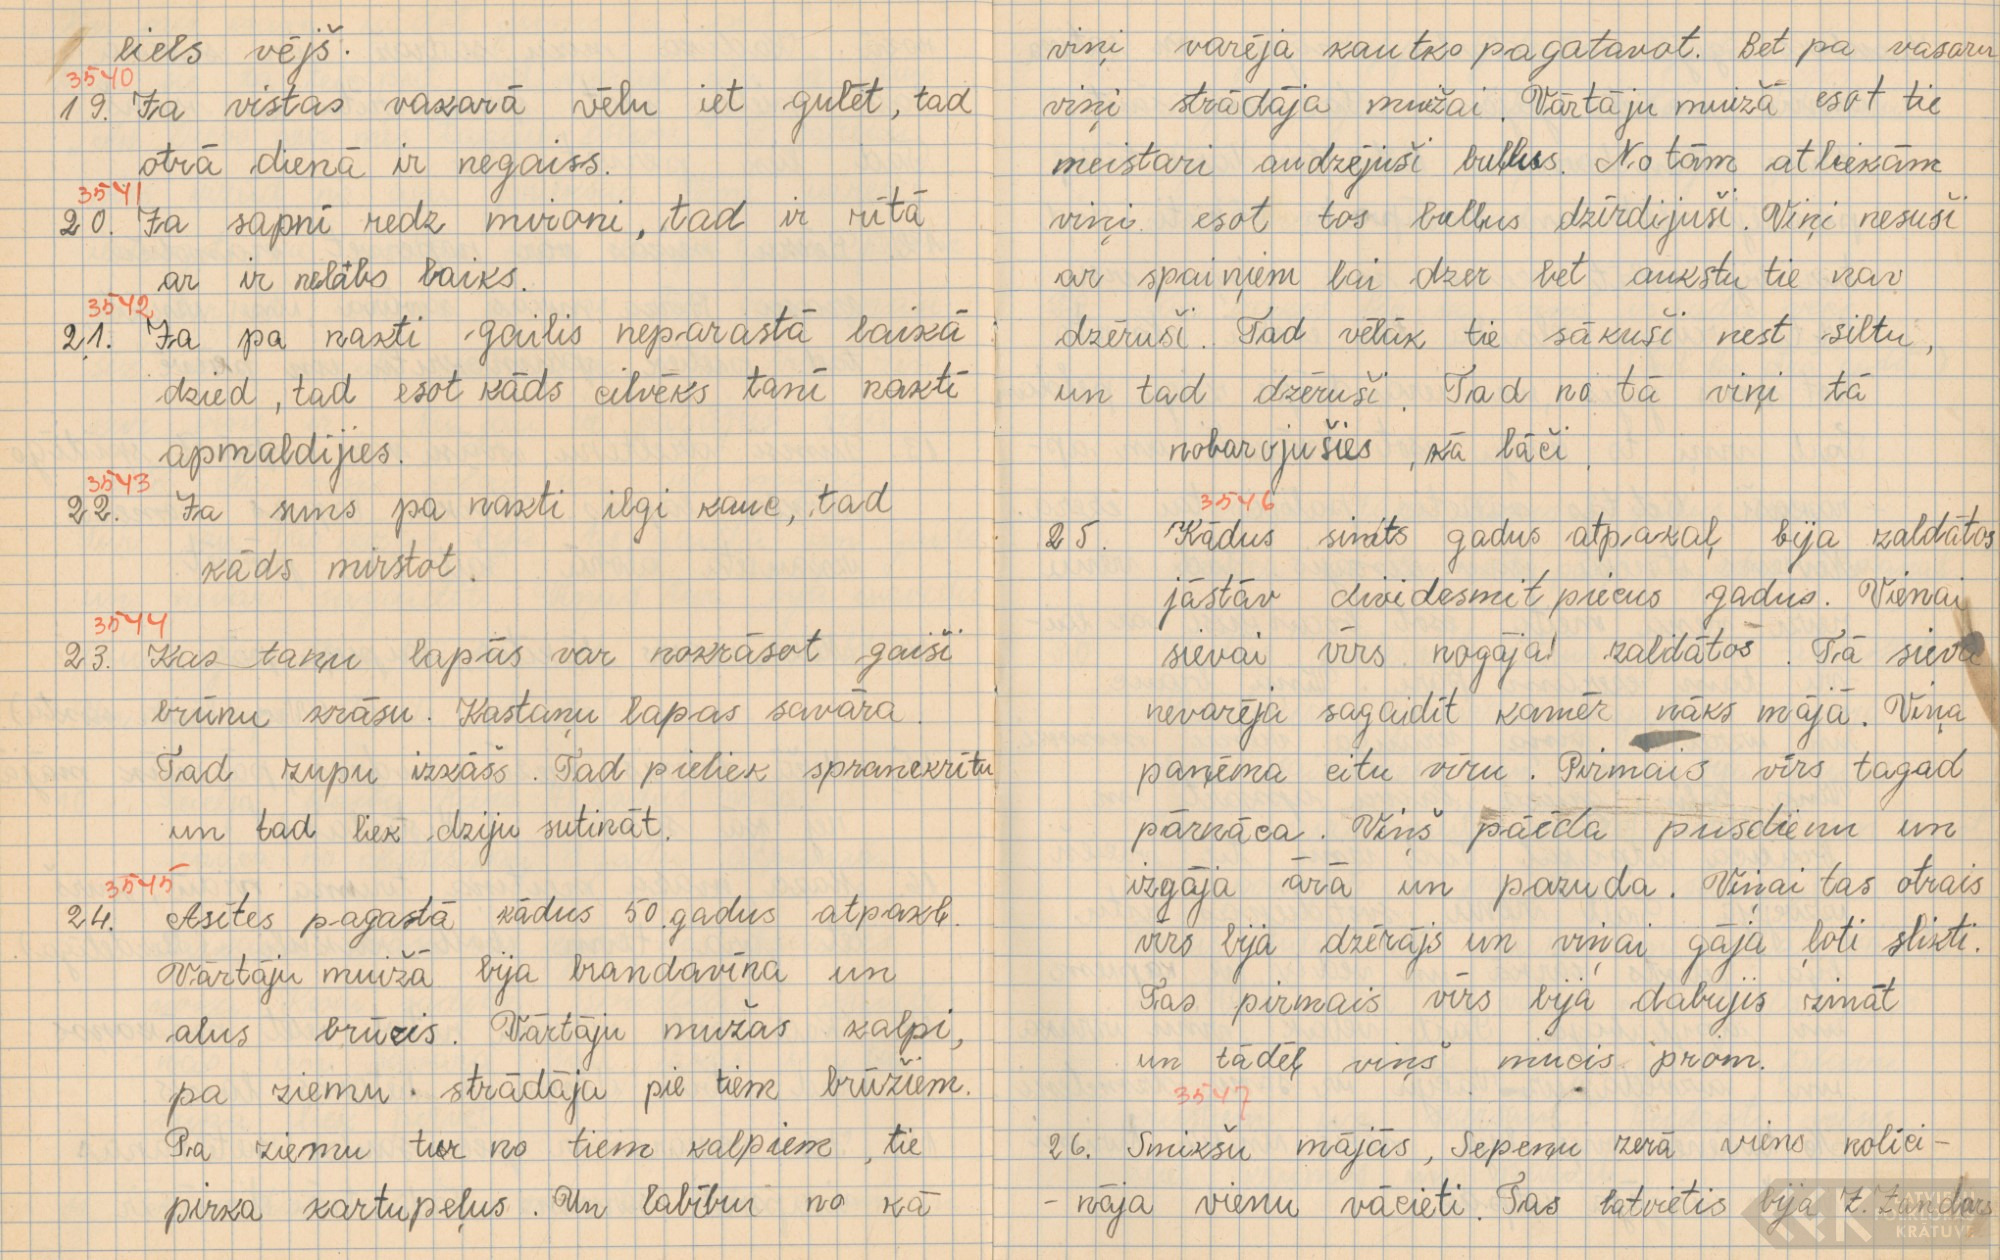 liels vējš.
3540
19. Ja vistas vakarā vēlu iet gulēt, tad
otrā dienā ir negaiss.
3541
20. Ja sapnī redz mironi, tad ir rītā
ar ir nelābs laiks.
3542
21. Ja pa nakti gailis neparastā laikā
dzied, tad esot kāds cilvēks tanī naktī
apmaldijies.
3543
22. Ja suns pa nakti ilgi kauc, tad
kāds mirstot.
3544
23. Kastaņu lapās var nokrāsot gaiši
brūnu krāsu. Kastaņu lapas savāra.
Tad zupu izkāšs. Tad pieliek spranekrītu
un tad liek dziju sutināt.
3545
24. Asītes pagastā kādus 50.gadus atpakļ.
Vārtāju muižā bija brandavīna un
alus brūzis. Vārtāju mužas kalpi,
pa ziemu. strādāja pie tiem brūžiem.
Pa ziemu tur no tiem kalpiem, tie
pirka kartupeļus. Un labību no kā
viņi varēja kautko pagatavot. Bet pa vasaru
viņi strādāja muižai. Vārtāju muizā esot tie
meistari audzējuši buļļus. No tām atliekām
viņi esot tos buļļus dzirdijuši. Viņi nesuši
ar spaiņiem lai dzer bet aukstu tie nav
dzēruši. Tad vēlāk tie sākuši nest siltu,
un tad dzēruši. Tad no tā viņi tā
nobarojušies, kā lāči.
3546
25. Kādus simts gadus atpakaļ bija zaldātos
jāstāv dividesmit piecus gadus. Vienai
sievai vīrs nogāja zaldātos. Tā sieva
nevarēja sagaidīt kamēr nāks mājā. Viņa
paņēma citu vīru. Pirmais vīrs tagad
pārnāca. Viņš paēda pusdienu un
izgāja ārā un pazuda. Viņai tas otrais
vīrs bija dzērājs un viņai gāja ļoti slikti.
Tas pirmais vīrs bija dabujis zināt
un tādēļ viņš mucis prom.
3547
26. Smikšu mājās, Sepeņu zerā viens nolici-
-nāja vienu vācieti. Tas latvietis bija Z. Zundars
LATVIEŠU
FOLKLORAS
KRĀTUVE